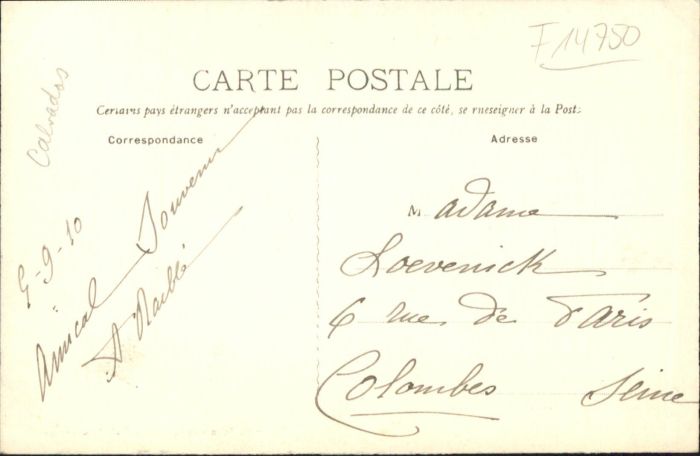 F 14750
Calvados
CARTE POSTALE
Certains pays étrangers n'acceptent pas la correspondance de ce côté, se rneseigner à la Poste
Correspondance
Adresse
5-9-10
Amical Souvenir
A Raiblé
Madame
Loevenick
6 rue de Paris
Colombes Seine